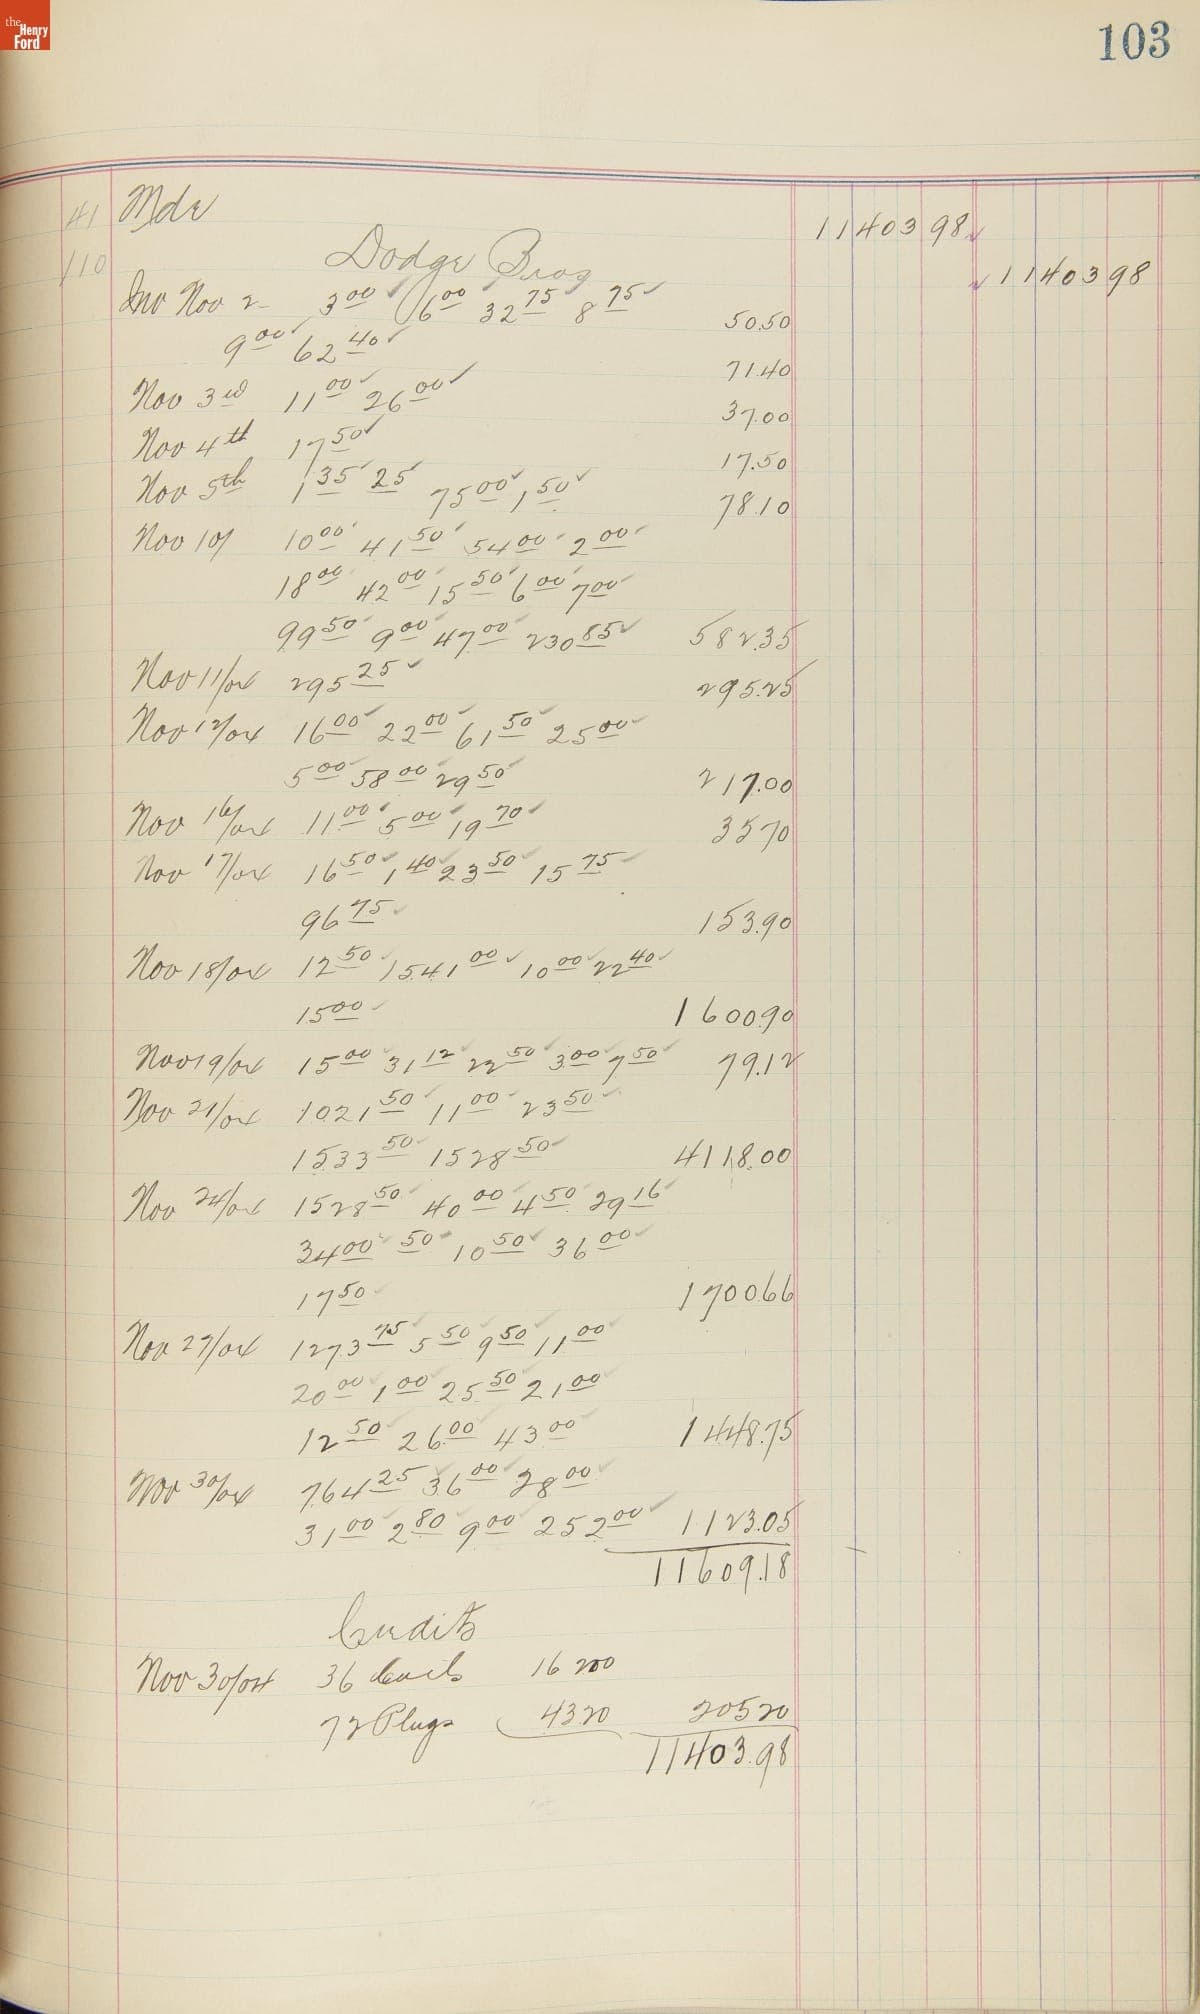 the Henry Ford
103
41 Mdv 11403 98
110 Dodge Bros 11403 98
Inv Nov 2 3 00 6 00 32 75 8 75 50.50
9 00 62 40 71.40
Nov 3rd 11 00 26 00 37.00
Nov 4th 17 50 17.50
Nov 5th 1 35 25 75 00 1 50 78.10
Nov 10/ 10 00 41 50 54 00 2 00
18 00 42 00 15 50 6 00 7 00
99 50 9 00 47 00 230 85 582.35
Nov 11/04 295 25 295.25
Nov 12/04 16 00 22 00 61 50 25 00
5 00 58 00 29 50 217.00
Nov 16/04 11 00 5 00 19 70 35 70
Nov 17/04 16 50 1 40 23 50 15 75
96 75 153.90
Nov 18/04 12 50 1541 00 10 00 22 40
15 00 1600.90
Nov 19/04 15 00 31 12 22 50 3 00 7 50 79.12
Nov 21/04 1021 50 11 00 23 50
1533 50 1528 50 4118.00
Nov 24/04 1528 50 40 00 4 50 29 16
34 00 50 10 50 36 00
17 50 1700 66
Nov 27/04 1273 75 5 50 9 50 11 00
20 00 1 00 25 50 21 00
12 50 26 00 43 00 1448.75
Nov 30/04 764 25 36 00 28 00
31 00 2 80 9 00 252 00 1123.05
11609.18
Credits
Nov 30/04 36 Coils 162 00
72 Plugs 43 20 205 20
11403.98